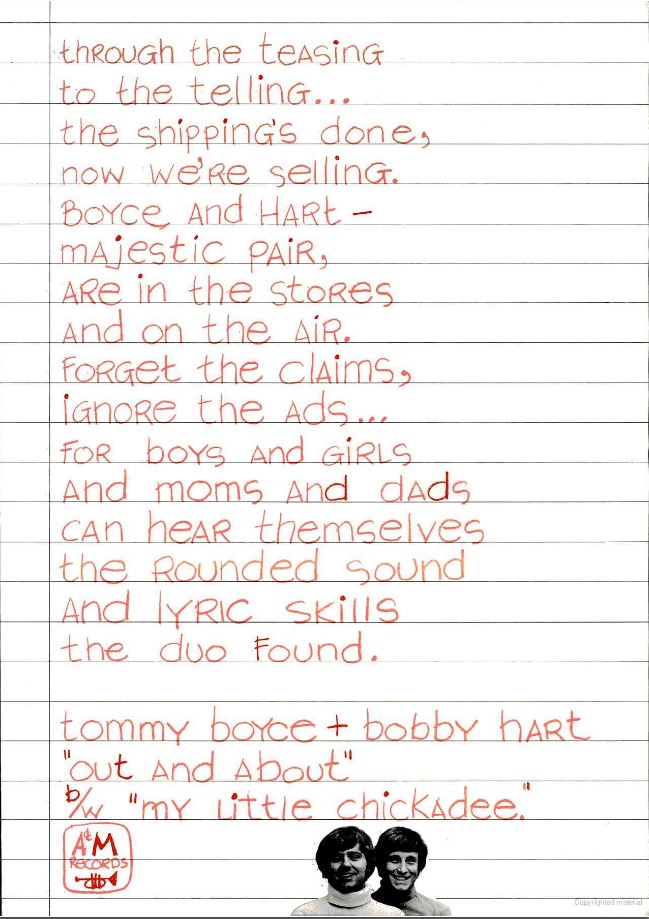 through the teasing
to the telling...
the shipping's done,
now we're selling.
Boyce and Hart –
majestic pair,
are in the stores
and on the air.
forget the claims,
ignore the ads...
for boys and girls
and moms and dads
can hear themselves
the rounded sound
and lyric skills
the duo found.
tommy boyce + bobby hart
"out and about"
b/w "my little chickadee."
A&M
RECORDS
Copyrighted material